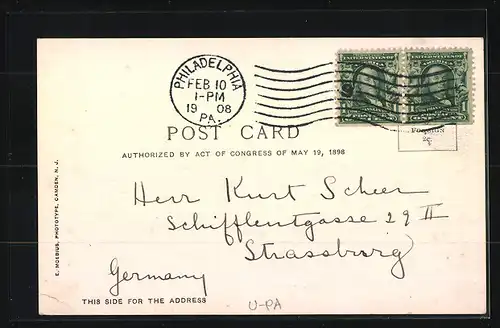 PHILADELPHIA
FEB 10
1-PM
1908
PA.
UNITED STATES OF AMERICA
POST CARD
FOREIGN
2¢.
AUTHORIZED BY ACT OF CONGRESS OF MAY 19, 1898
Herr Kurt Scheer
Schifflentgasse 29 II
Strassburg
Germany
THIS SIDE FOR THE ADDRESS
U-PA
E. MOEBIUS, PHOTOTYPE, CAMDEN, N. J.